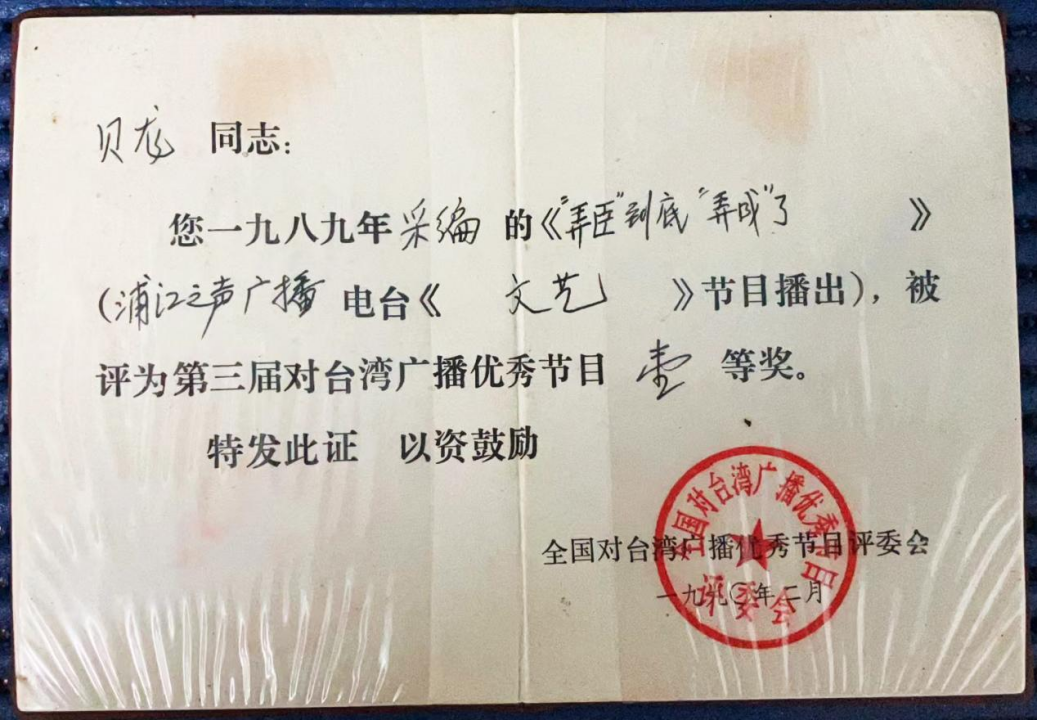 贝龙 同志：
您一九八九年采编的《“弄臣”到底“弄成”了》
(浦江之声广播电台《文艺》节目播出)，被
评为第三届对台湾广播优秀节目 壹 等奖。
特发此证 以资鼓励
全国对台湾广播优秀节目评委会
一九九〇年二月
全国对台湾广播优秀节目
评委会